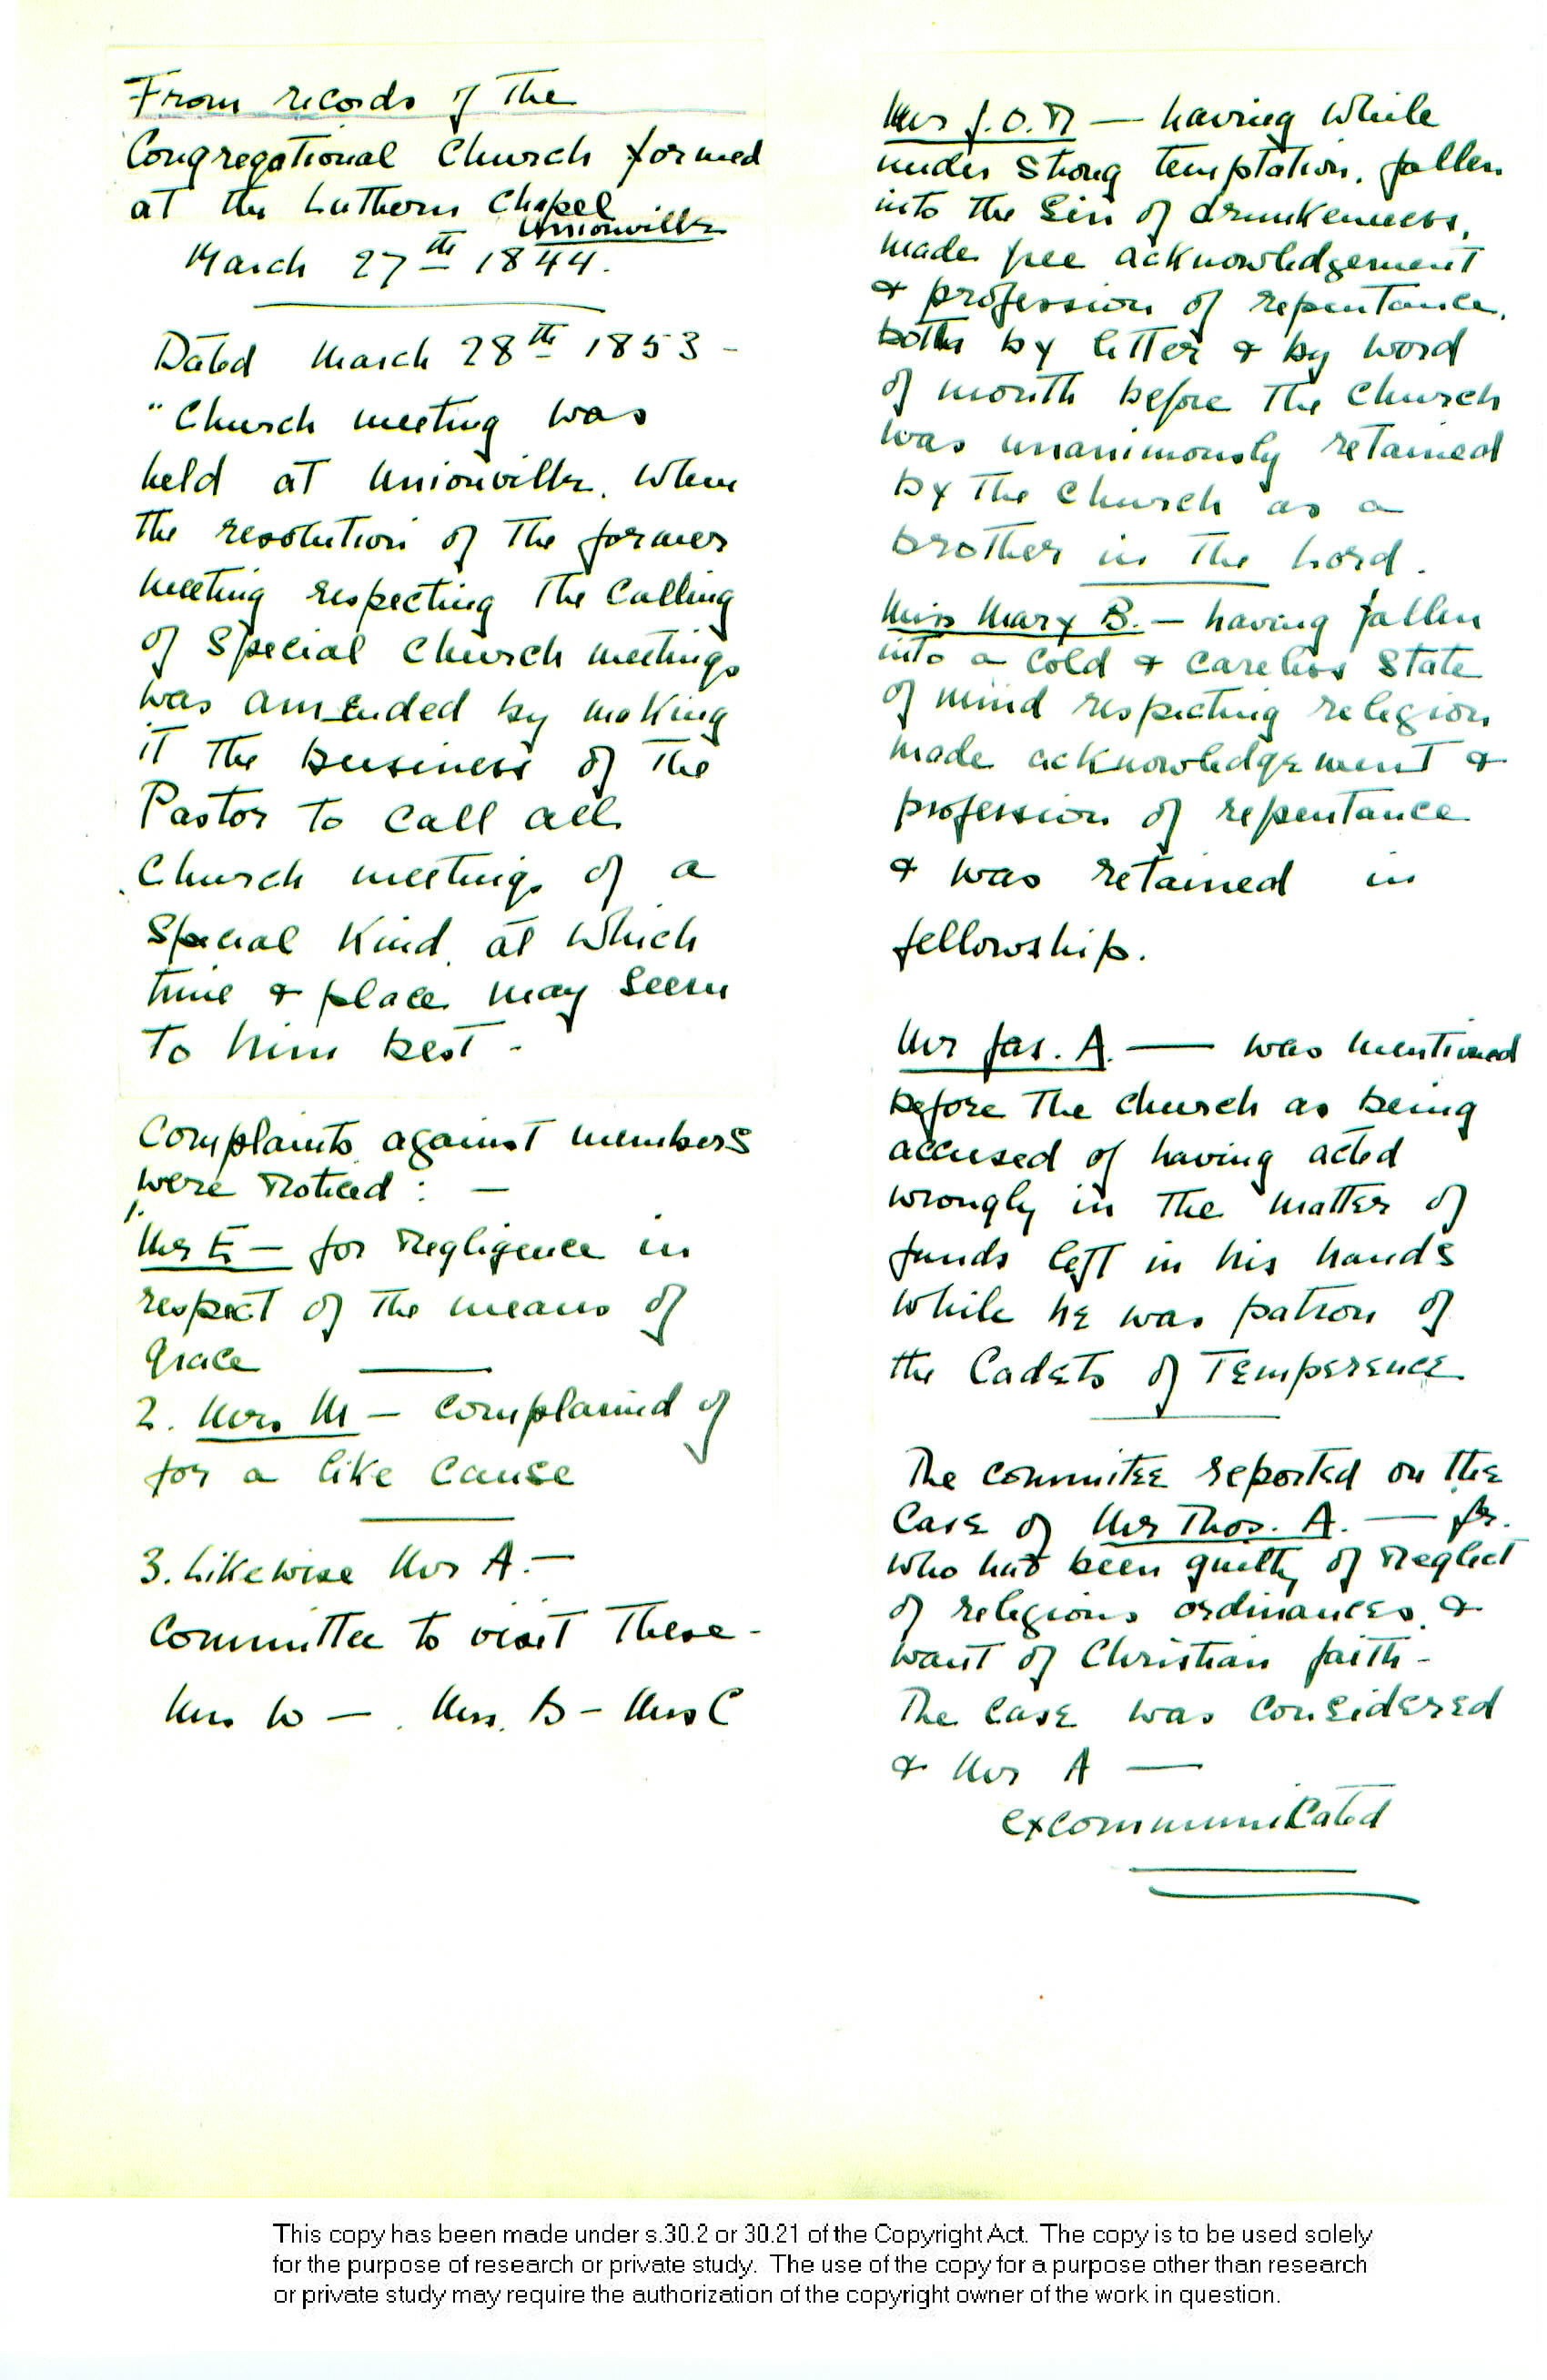 From records of the
Congregational Church formed
at the Luthern Chapel
Unionville
March 27th 1844.
Dated March 28th 1853 -
"Church meeting was
held at Unionville. When
the resolution of the former
meeting respecting the Calling
of Special Church meetings
was amended by making
it the business of the
Pastor to call all
Church meetings of a
Special Kind, at which
time & place may seem
to him best -
Complaints against members
were noticed : -
1.
Mr E - for negligence in
respect of the means of
Grace
2. Mrs. M - complained of
for a like cause
3. Likewise Mr A. -
Committee to visit These -
Mrs W - . Mrs. B - Mrs C
Mr J.O.N - having while
under strong temptation, fallen
into the Sin of drunkenness,
made free acknowledgement
& profession of repentance,
both by letter & by word
of mouth before the Church
was unanimously retained
by the Church as a
brother in the Lord.
Miss Mary B. - having fallen
into a cold & careless state
of mind respecting religion
made acknowledgement &
profession of repentance
& was retained in
fellowship.
Mr Jas. A. — was mentioned
before the church as being
accused of having acted
wrongly in the matter of
funds left in his hands
while he was patron of
the Cadets of Temperence
The commitee reported on the
Case of Mr Thos. A. — Jr.
who had been guilty of neglect
of religious ordinances &
want of Christian faith -
The case was considered
& Mr A —
excommunicated
This copy has been made under s.30.2 or 30.21 of the Copyright Act. The copy is to be used solely
for the purpose of research or private study. The use of the copy for a purpose other than research
or private study may require the authorization of the copyright owner of the work in question.